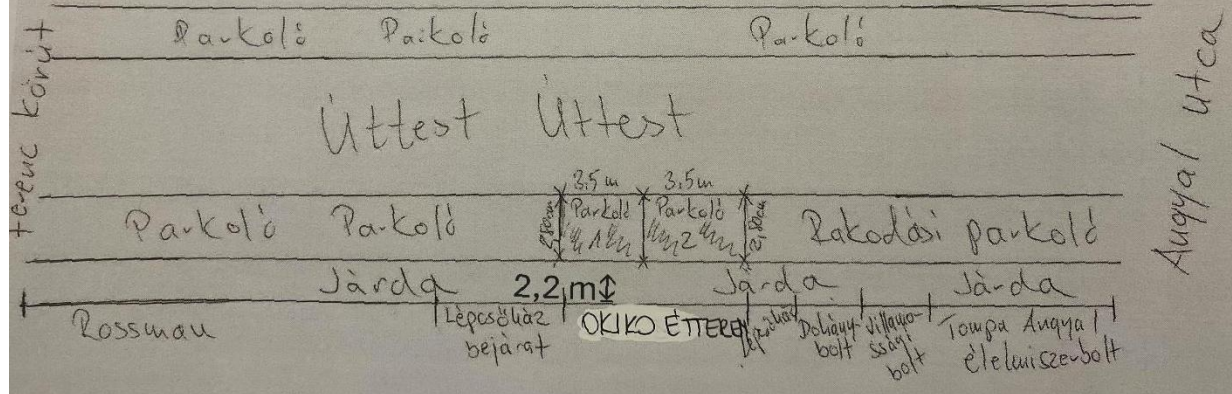 Parkoló Parkoló Parkoló
Ferenc körút
Angyal Utca
Úttest Úttest
3,5 m 3,5 m
Parkoló Parkoló 280cm Parkoló 1 Parkoló 2 2,80cm Rakodási parkoló
Járda 2,2 m Járda Járda
Rossman
Lépcsőház
bejárat
OKIKO ÉTTEREM
Lépcsőház
Dohány
bolt
Villamos
sági
bolt
Tompa Angyal
élelmiszerbolt